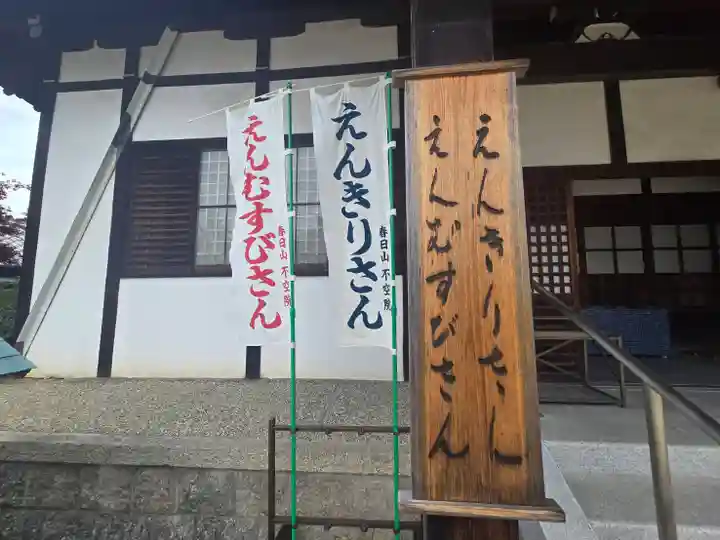 えんきりさん
えんむすびさん
えんきりさん
春日山 不空院
えんむすびさん
春日山 不空院